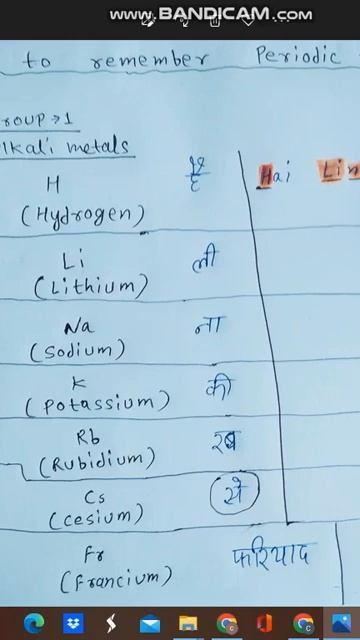 www.BANDICAM.com
to remember Periodic
ROUP→1
lkali metals
H है Hai Lin
(Hydrogen)
Li ली
(Lithium)
Na ना
(Sodium)
K की
(Potassium)
Rb रब
(Rubidium)
Cs से
(Cesium)
Fr फरियाद
(Francium)